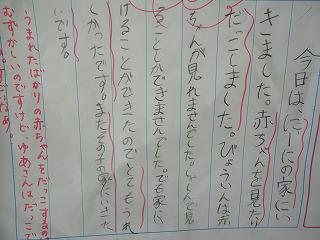 今日は、にーにの家にい
きました。赤ちゃんを見たり
だっこしました。びょういんは赤
ちゃんが見れませんでした。しゃしんで見
ることしかできませんでした。でも家にい
けることができたのでとてもうれ
しかったです。またその子の家にいきた
いです。
うまれたばかりの赤ちゃんをだっこするのは
むずかしいのですけど、ゆあさんはだっこで